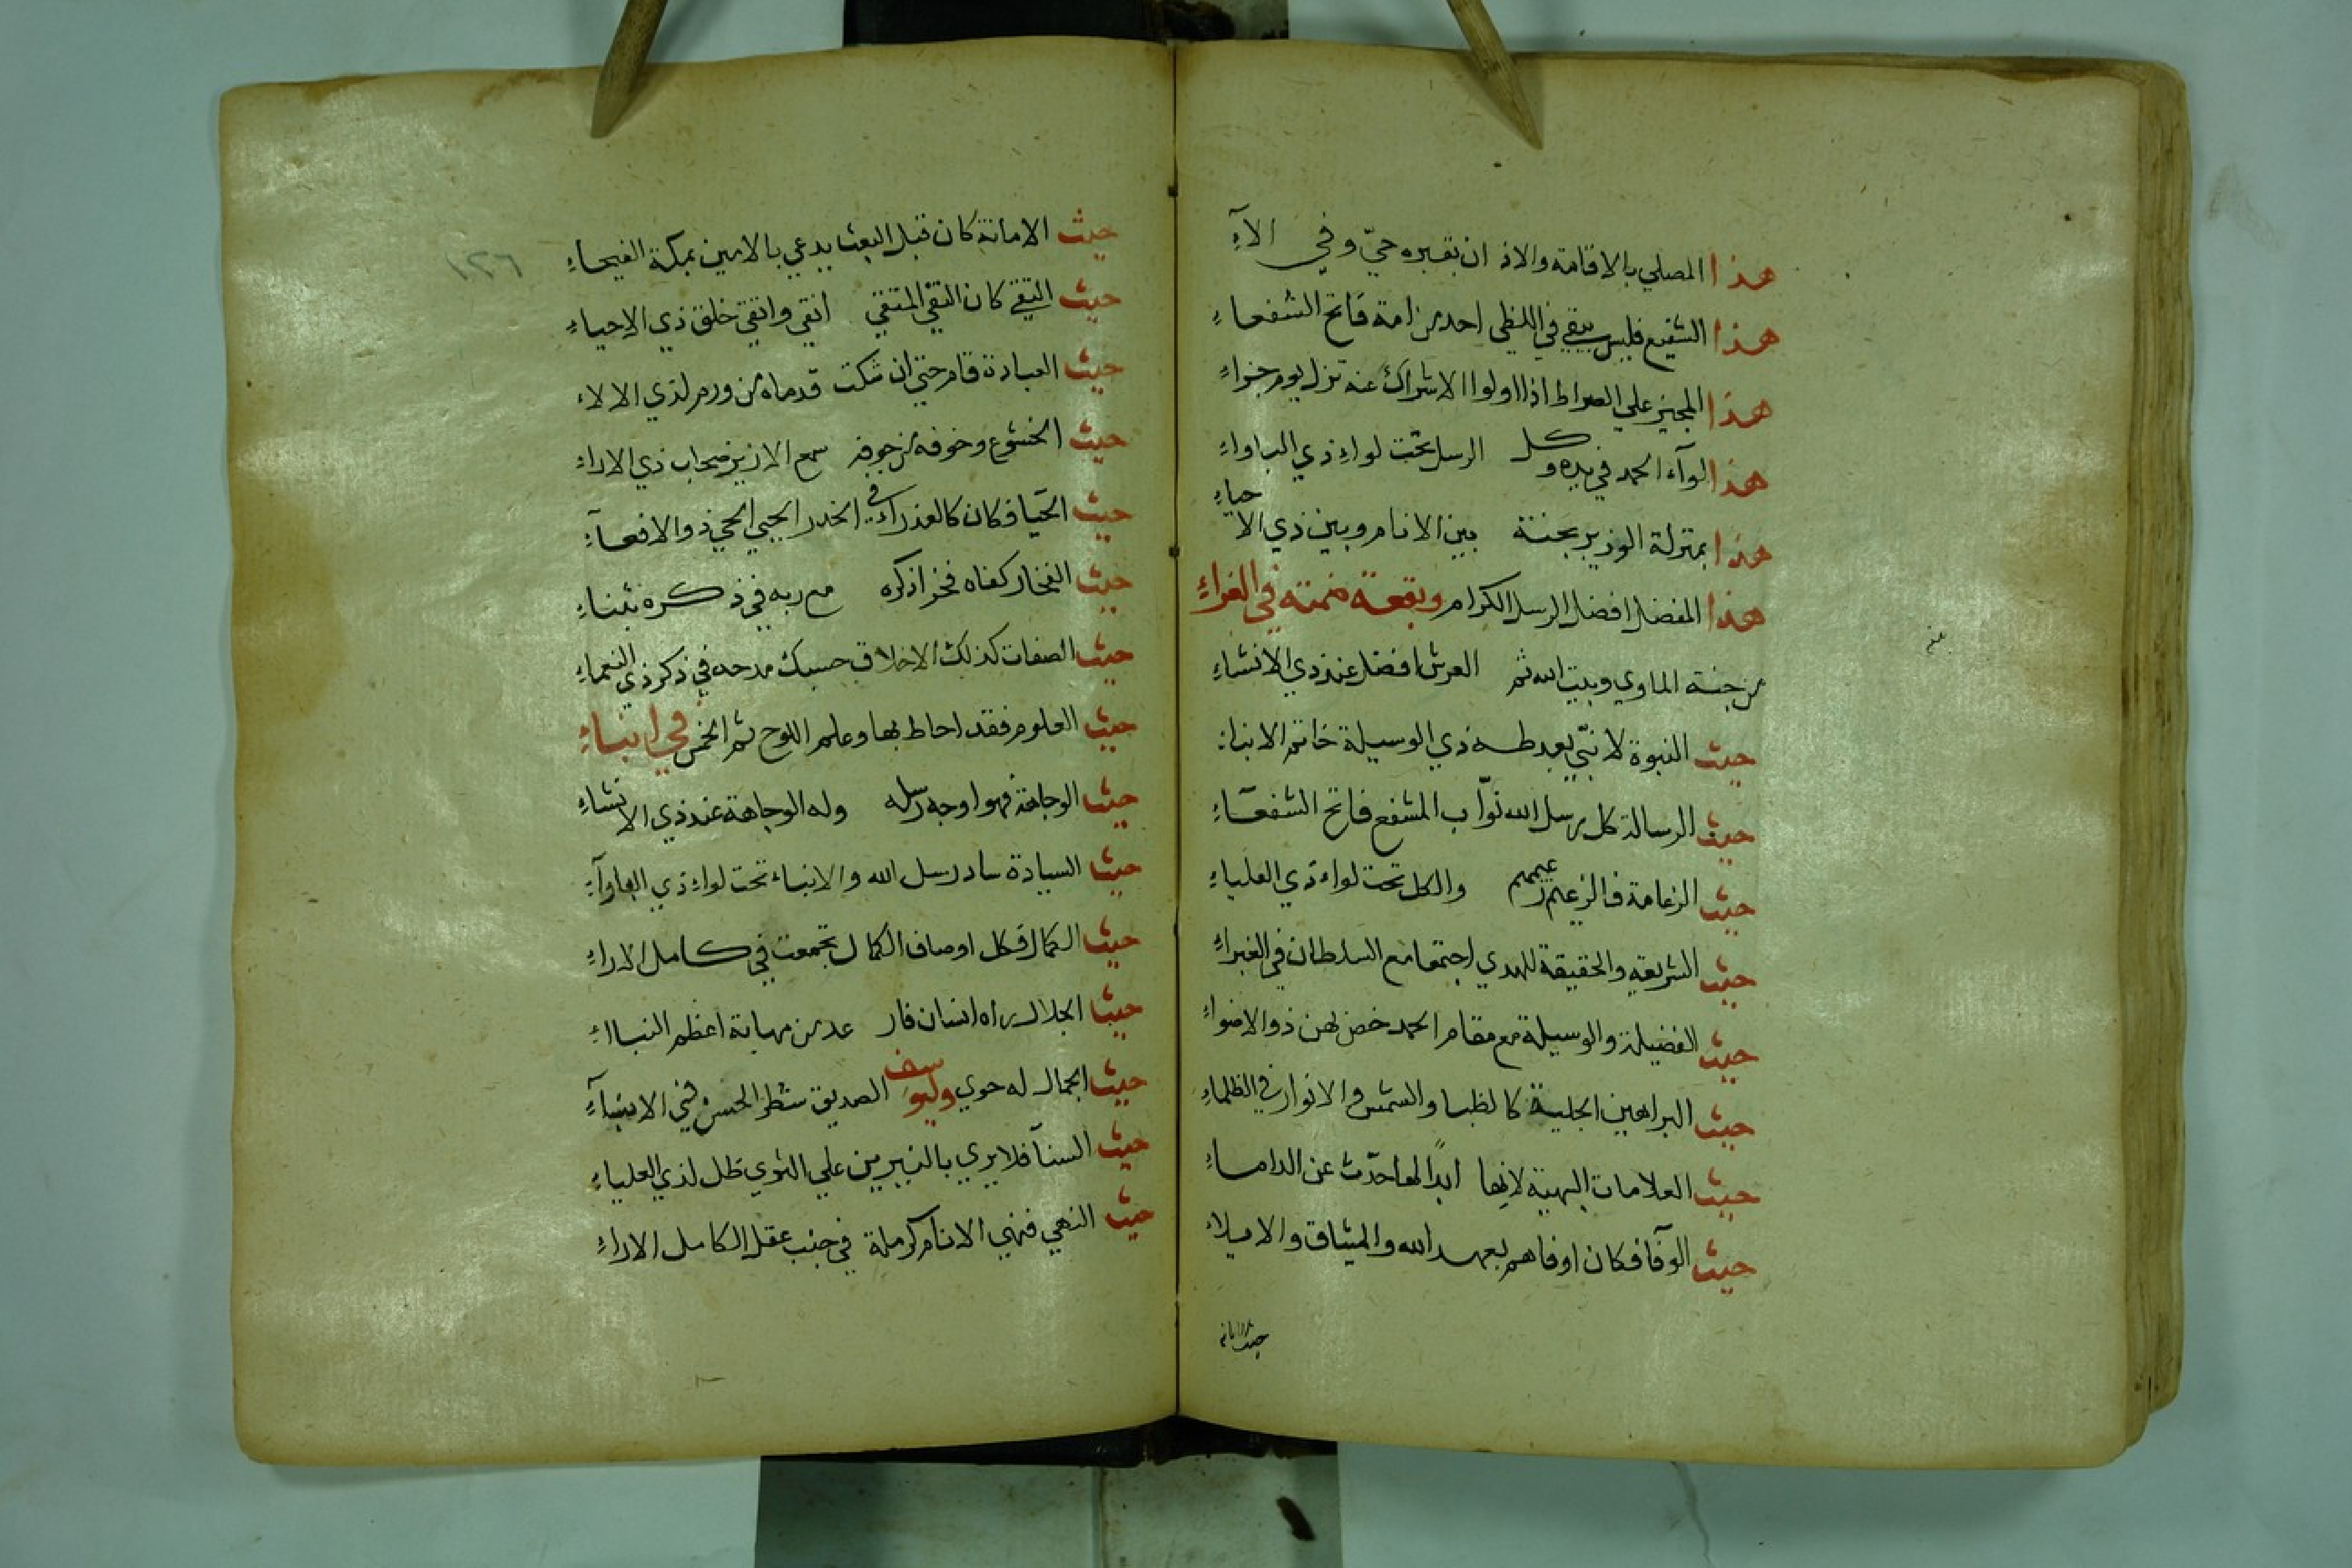 هذا المصلي بالاقامة والاذ ان بقبره حيّ وفي الآءِ
هذا الشفيع فليس يبقي في اللظي احد من امة فاتح الشفعاءِ
هذا المجيز علي الصراط اذا اولوا الاشراك عنه تزل يوم جزاءِ
هذا لوآء الحمد في يده و كل الرسل تحت لواءِ ذي الباواءِ
هذا بمنزلة الوزير بجنة بين الانام وبين ذي الاحياءِ
هذا المفضل افضل الرسل الكرام وبقعة ضمته في الغراءِ
من جنة الماوي وبيت الله ثم العرش افضل عند ذي الانشاءِ
حيث النبوة لا نبّي بعد طه ذي الوسيلة خاتم الانباءِ
حيث الرسالة كل رسل الله نوّاب المشفع فاتح الشفعآءِ
حيث الزعامة فالزعيم زعيمهم والكل تحت لواء ذي العلياءِ
حيث الشريعة والحقيقة للهدي اجتمعا مع السلطان في الغبراءِ
حيث الفضيلة والوسيلة مع مقام الحمد خص لهن ذو الاضواءِ
حيث البراهين الجلية كالظبا والشمس والانوار في الظلماءِ
حيث العلامات البهية لانها ابدًا لها حدّث عن الداماءِ
حيث الوفا فكان اوفاهم بعهد الله والميثاق والايلاءِ
حيث الامانة
حيث الامانة كان قبل البعث يدعي بالامين بمكة الفيحاءِ
١٢٦
حيث التقي كان التقي المتقي انقي واتقي خلق ذي الاحياءِ
حيث العبادة قام حتي ان شكت قدماه من ورم لذي الالاء
حيث الخشوع وخوفه من جوفه سمع الازيز صحاب ذي الاراءِ
حيث الحيا فكان كالعذراءِ في الخدر الحيي الحي ذو الافعآءِ
حيث الفخار كفاه فخرا ذكره مع ربه في ذكره بثناءِ
حيث الصفات كذلك الاخلاق حسبك مدحه في ذكر ذي النعماءِ
حيث العلوم فقد احاط بها وعلم اللوح ثم الخمس في انباءِ
حيث الوجاهة فهو اوجه رسله وله الوجاهة عند ذي الانشاءِ
حيث السيادة ساد رسل الله والانباء تحت لواءِ ذي الباوآءِ
حيث الكمال فكل اوصاف الكمال تجمعت في كامل الاراءِ
حيث الجلال راه انسان فار عد من مهابة اعظم النباءِ
حيث الجمال له حوي وليوسف الصديق شطر الحسن في الانبآءِ
حيث السنآ فلا يري بالنيرين علي الثوي ظل لذي العلياءِ
حيث النهي فنهي الانام كرملة في جنب عقل الكامل الاراءِ